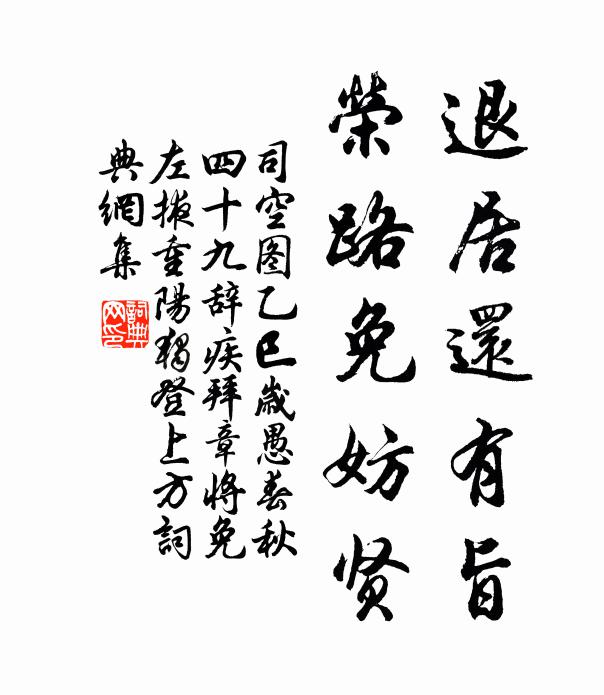 退居還有旨
榮路免妨贤
司空图乙巳歲愚春秋
四十九辞疾拜章將免
左掖重陽独登上方詞
典網集
詞典
网印